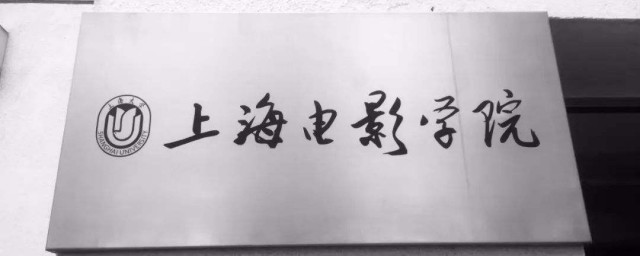 上海电影学院
上海大学
SHANGHAI UNIVERSITY